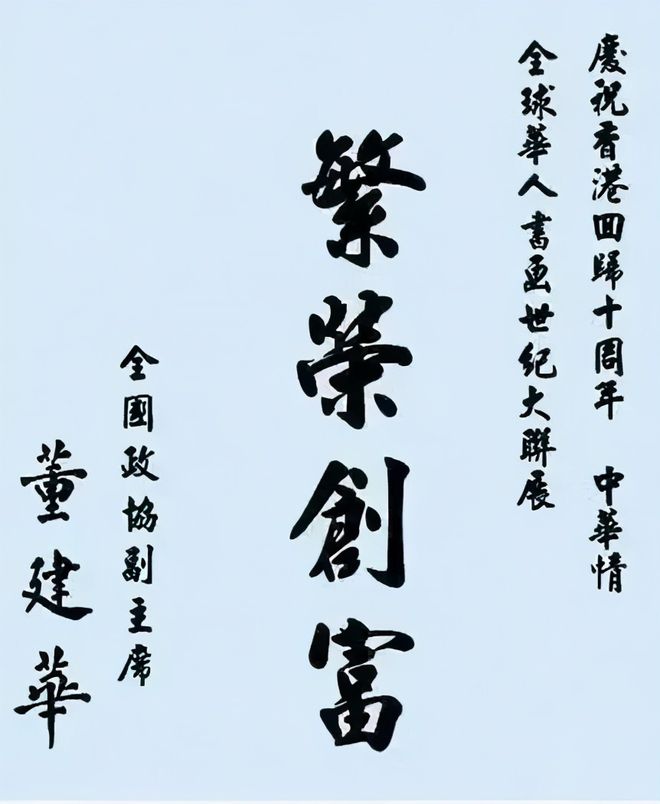 慶祝香港回歸十周年 中華情
全球華人書画世纪大聯展
繁榮創富
全國政協副主席
董建華